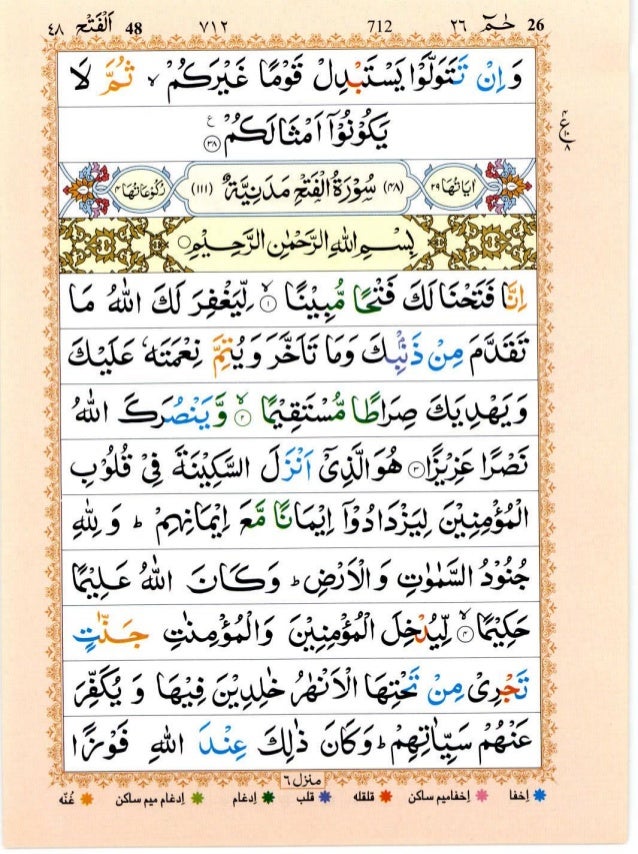 ٤٨ اَلْفَتْح 48 ٧١٢ 712 حٰمٓ ٢٦ 26
وَاِنْ تَتَوَلَّوْا يَسْتَبْدِلْ قَوْمًا غَيْرَكُمْ ۙ ثُمَّ لَا
يَكُوْنُوْٓا اَمْثَالَكُمْ ۝٣٨
اٰيَاتُهَا ٢٩ (٤٨) سُوْرَةُ الْفَتْحِ مَدَنِيَّةٌ (١١١) رُكُوْعَاتُهَا ٤
بِسْمِ اللّٰهِ الرَّحْمٰنِ الرَّحِيْمِ
اِنَّا فَتَحْنَا لَكَ فَتْحًا مُّبِيْنًا ۝١ۙ لِّيَغْفِرَ لَكَ اللّٰهُ مَا
تَقَدَّمَ مِنْ ذَنْۢبِكَ وَمَا تَاَخَّرَ وَيُتِمَّ نِعْمَتَهٗ عَلَيْكَ
وَيَهْدِيَكَ صِرَاطًا مُّسْتَقِيْمًا ۝٢ۙ وَّيَنْصُرَكَ اللّٰهُ
نَصْرًا عَزِيْزًا ۝٣ هُوَ الَّذِيْٓ اَنْزَلَ السَّكِيْنَةَ فِيْ قُلُوْبِ
الْمُؤْمِنِيْنَ لِيَزْدَادُوْٓا اِيْمَانًا مَّعَ اِيْمَانِهِمْ ؕ وَلِلّٰهِ
جُنُوْدُ السَّمٰوٰتِ وَالْاَرْضِ ؕ وَكَانَ اللّٰهُ عَلِيْمًا
حَكِيْمًا ۝٤ۙ لِّيُدْخِلَ الْمُؤْمِنِيْنَ وَالْمُؤْمِنٰتِ جَنّٰتٍ
تَجْرِيْ مِنْ تَحْتِهَا الْاَنْهٰرُ خٰلِدِيْنَ فِيْهَا وَيُكَفِّرَ
عَنْهُمْ سَيِّاٰتِهِمْ ؕ وَكَانَ ذٰلِكَ عِنْدَ اللّٰهِ فَوْزًا
منزل ٦
إخفا إخفامیم ساکن قلقله قلب إدغام إدغام میم ساکن غُنّه